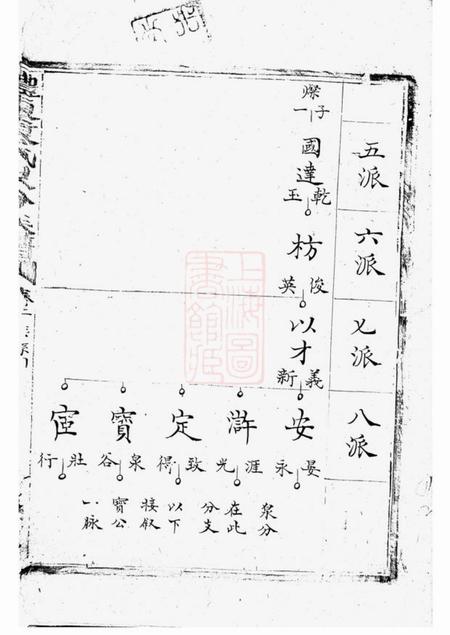 五派
六派
七派
八派
燦
子一
國達
乾玉
枋
俊英
以才
義新
安
晏永
滸
涯光
定
致得
寶
泉谷
宦
壯行
泉分
在此
分支
以下
接叙
寶公
一脉
上海圖
書館藏